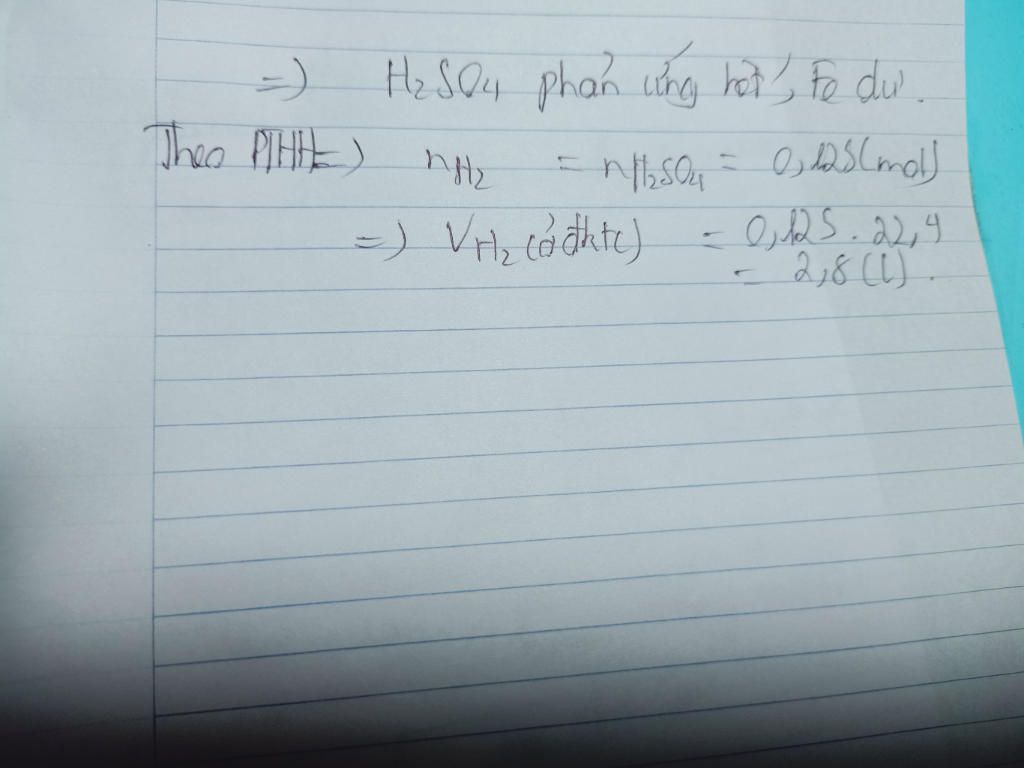 =) H₂SO₄ phản ứng hết, Fe dư.
Theo PTHH=) nH₂ = nH₂SO₄ = 0,125(mol)
=) VH₂ (ở đktc) = 0,125 . 22,4
= 2,8 (l).